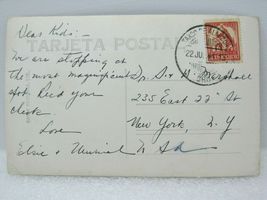 TARJETA POSTAL
Dear Kids:-
We are stopping at
the most magnificent
spot. Rec'd your
check.
Love
Elsie & Muriel
Dr S. & H Marshall
235 East 22" St
New York, N Y
22 JU